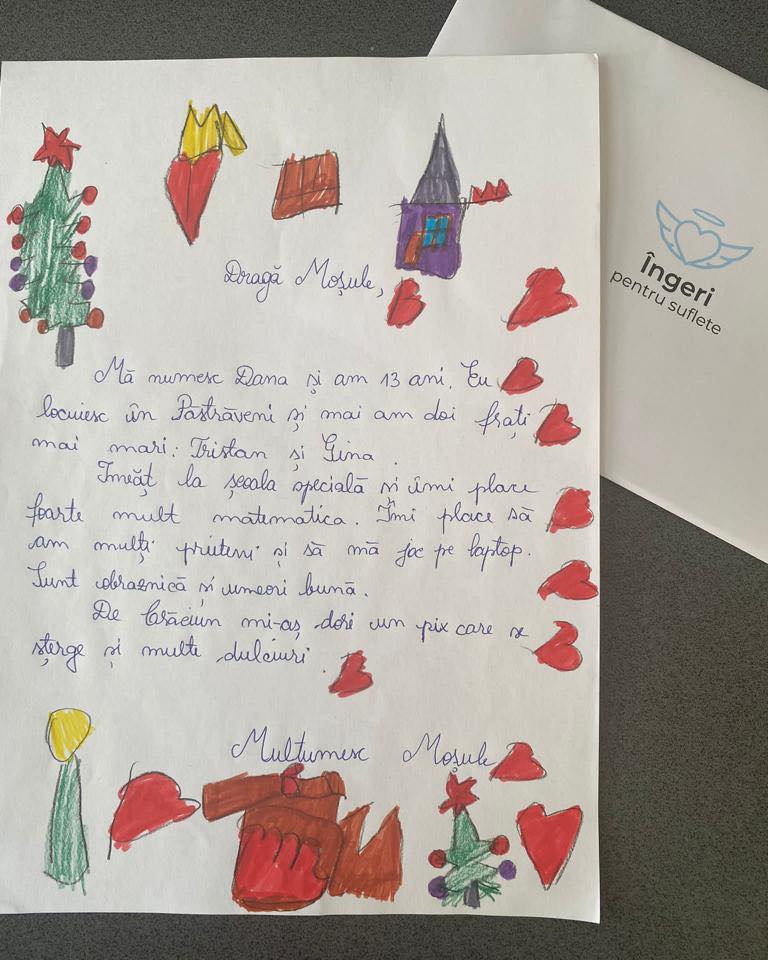 Dragă Moșule,
Mă numesc Dana și am 13 ani. Eu
locuiesc în Păstrăveni și mai am doi frați
mai mari: Tristan și Gina.
Învăț la școala specială și îmi place
foarte mult matematica. Îmi place să
am mulți prieteni și să mă joc pe laptop.
Sunt obraznică și uneori bună.
De Crăciun mi-aș dori un pix care se
șterge și multe dulciuri.
Multumesc Moșule
Îngeri
pentru suflete